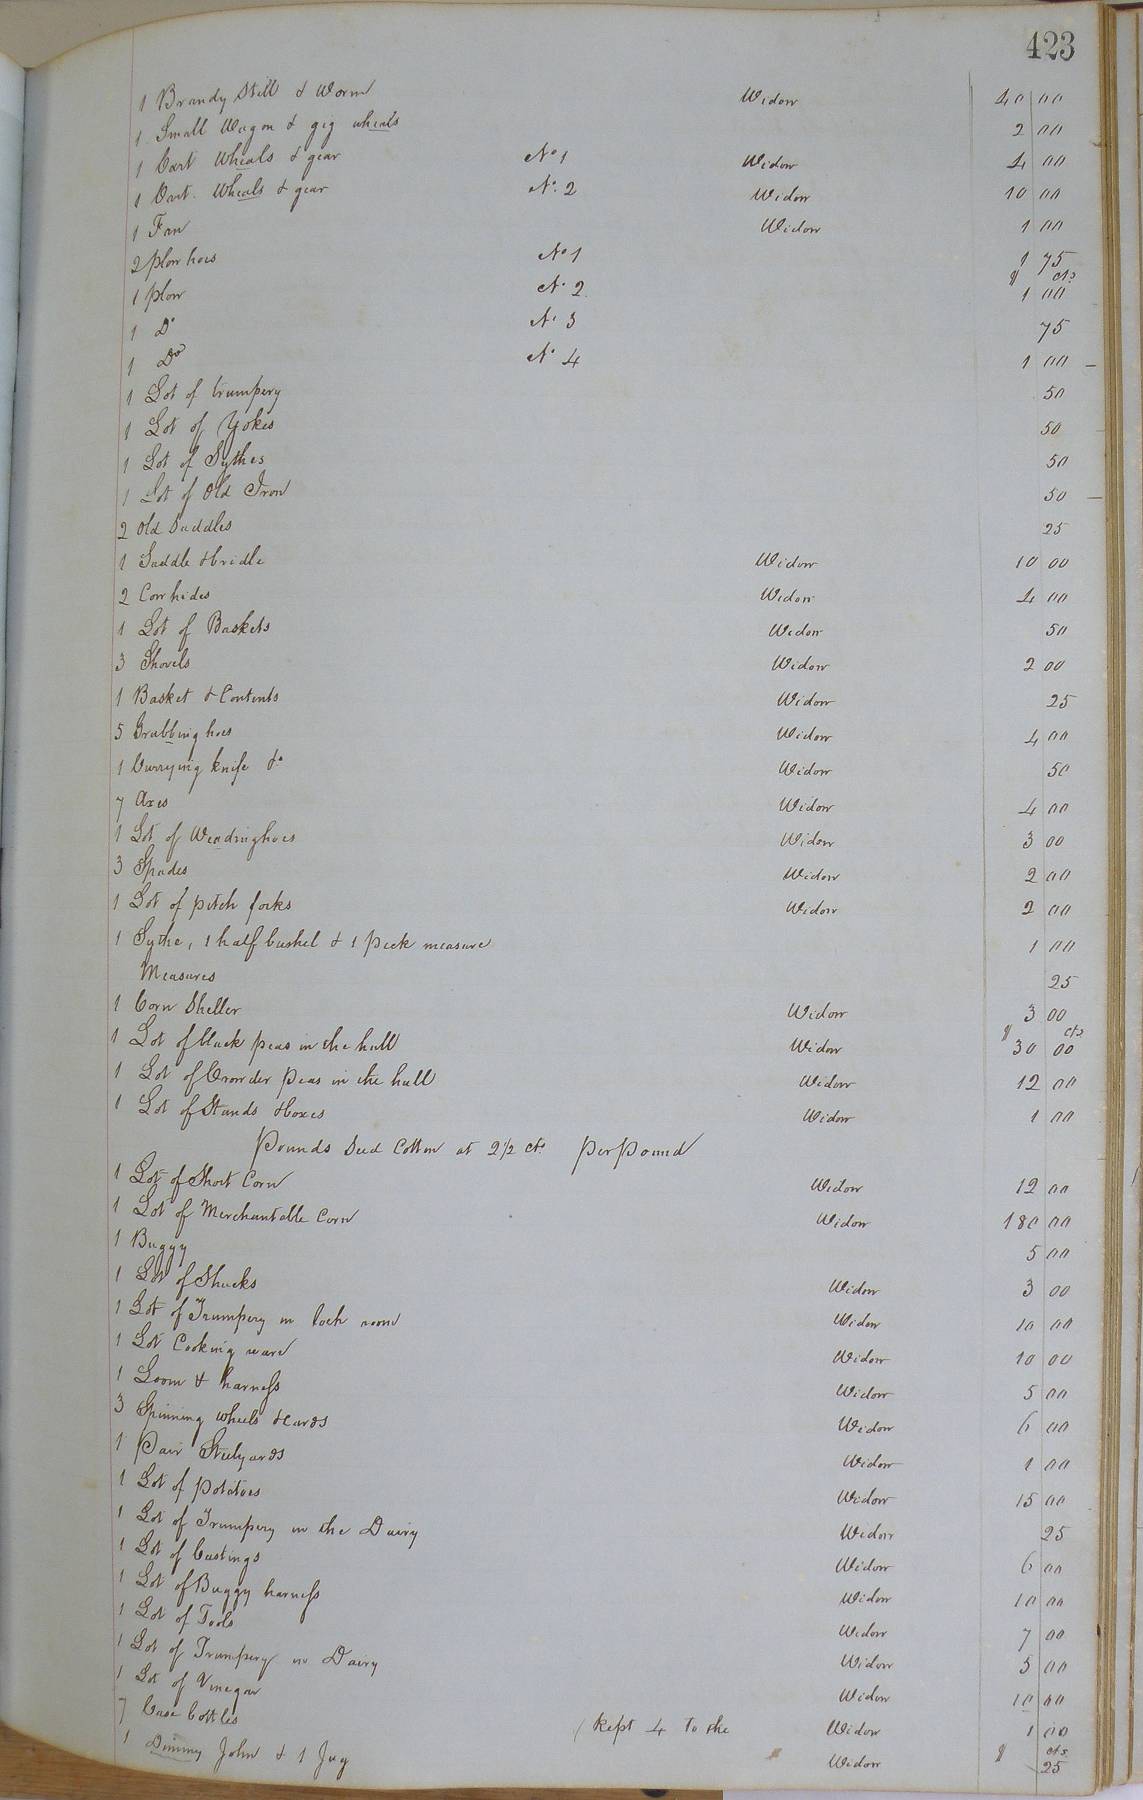 423
1 Brandy Still & Worm Widow 40 00
1 Small Wagon & gig wheals 2 00
1 Cart Wheals & gear No 1 Widow 4 00
1 Cart Wheals & gear No. 2 Widow 10 00
1 Fan Widow 1 00
2 plow hoes No 1 1 75
$ cts
1 plow No 2 1 00
1 Do No 3 75
1 Do No 4 1 00
1 Lot of trumpery 50
1 Lot of Yokes 50
1 Lot of Sythes 50
1 Lot of Old Iron 50
2 Old Saddles 25
1 Saddle & bridle Widow 10 00
2 Cowhides Widow 4 00
1 Lot of Baskets Widow 50
3 Shovels Widow 2 00
1 Basket & Contents Widow 25
5 Grubbing hoes Widow 4 00
1 Currying knife &c Widow 50
7 Axes Widow 4 00
1 Lot of Weadinghoes Widow 3 00
3 Spades Widow 2 00
1 Lot of pitch forks Widow 2 00
1 Sythe, 1 half bushel & 1 peck measure 1 00
Measures 25
1 Corn Sheller Widow 3 00
$ cts
1 Lot of black peas in the hull Widow 30 00
1 Lot of Crowder Peas in the hull Widow 12 00
1 Lot of Stands & boxes Widow 1 00
Pounds Seed Cotton at 2 1/2 cts Per Pound
1 Lot of Short Corn Widow 12 00
1 Lot of Merchantable Corn Widow 180 00
1 Buggy 5 00
1 Lot of Shucks Widow 3 00
1 Lot of Trumpery in lock room Widow 10 00
1 Lot Cooking ware Widow 10 00
1 Loom & harness Widow 5 00
3 Spinning wheels & cards Widow 6 00
1 Pair Steelyards Widow 1 00
1 Lot of Potatoes Widow 15 00
1 Lot of Trumpery in the Dairy Widow 25
1 Lot of Castings Widow 6 00
1 Lot of Buggy harness Widow 10 00
1 Lot of Tools Widow 7 00
1 Lot of Trumpery in Dairy Widow 5 00
1 Lot of Vinegar Widow 10 00
7 Case bottles (kept 4 to the Widow 1 00
$ cts
1 Dimmy John & 1 Jug Widow 25